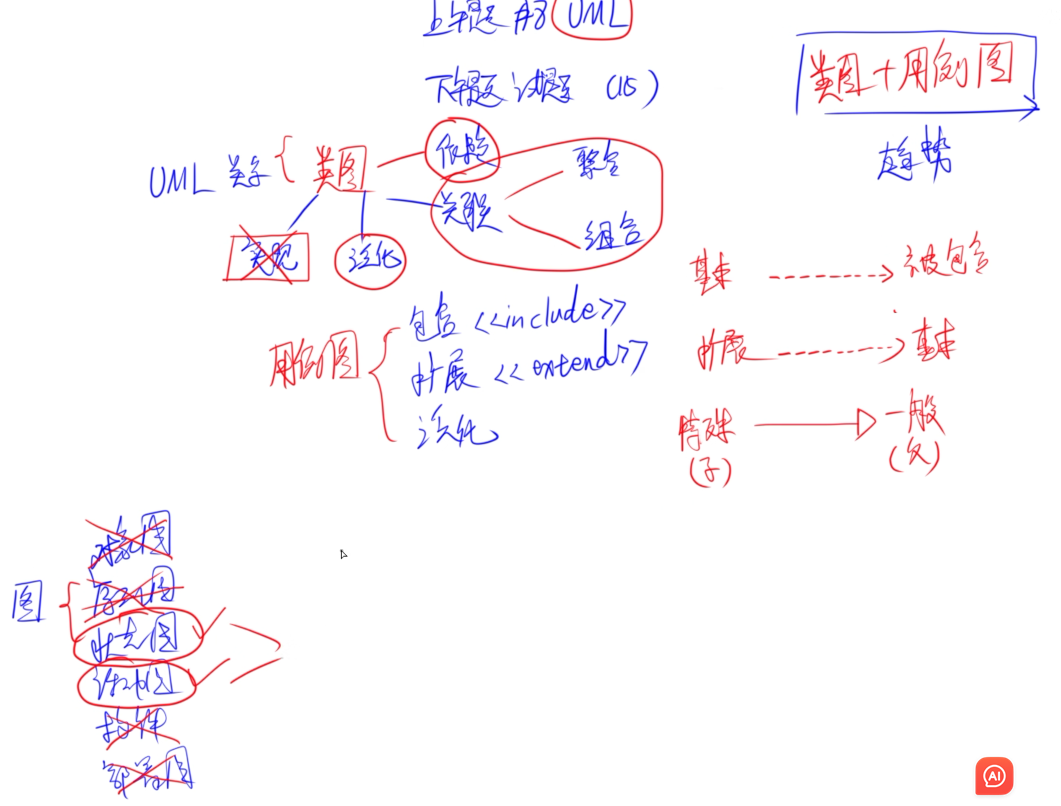 上午题 #8 UML
下午题 试题 (15)
类图+用例图
趋势
UML 关系
类图
依赖
关联
聚合
组合
实现
泛化
用例图
包含 <<include>>
扩展 <<extend>>
泛化
基本
被包含
扩展
基本
特殊
(子)
一般
(父)
图
对象图
序列图
状态图
活动图
构件
部署图
AI